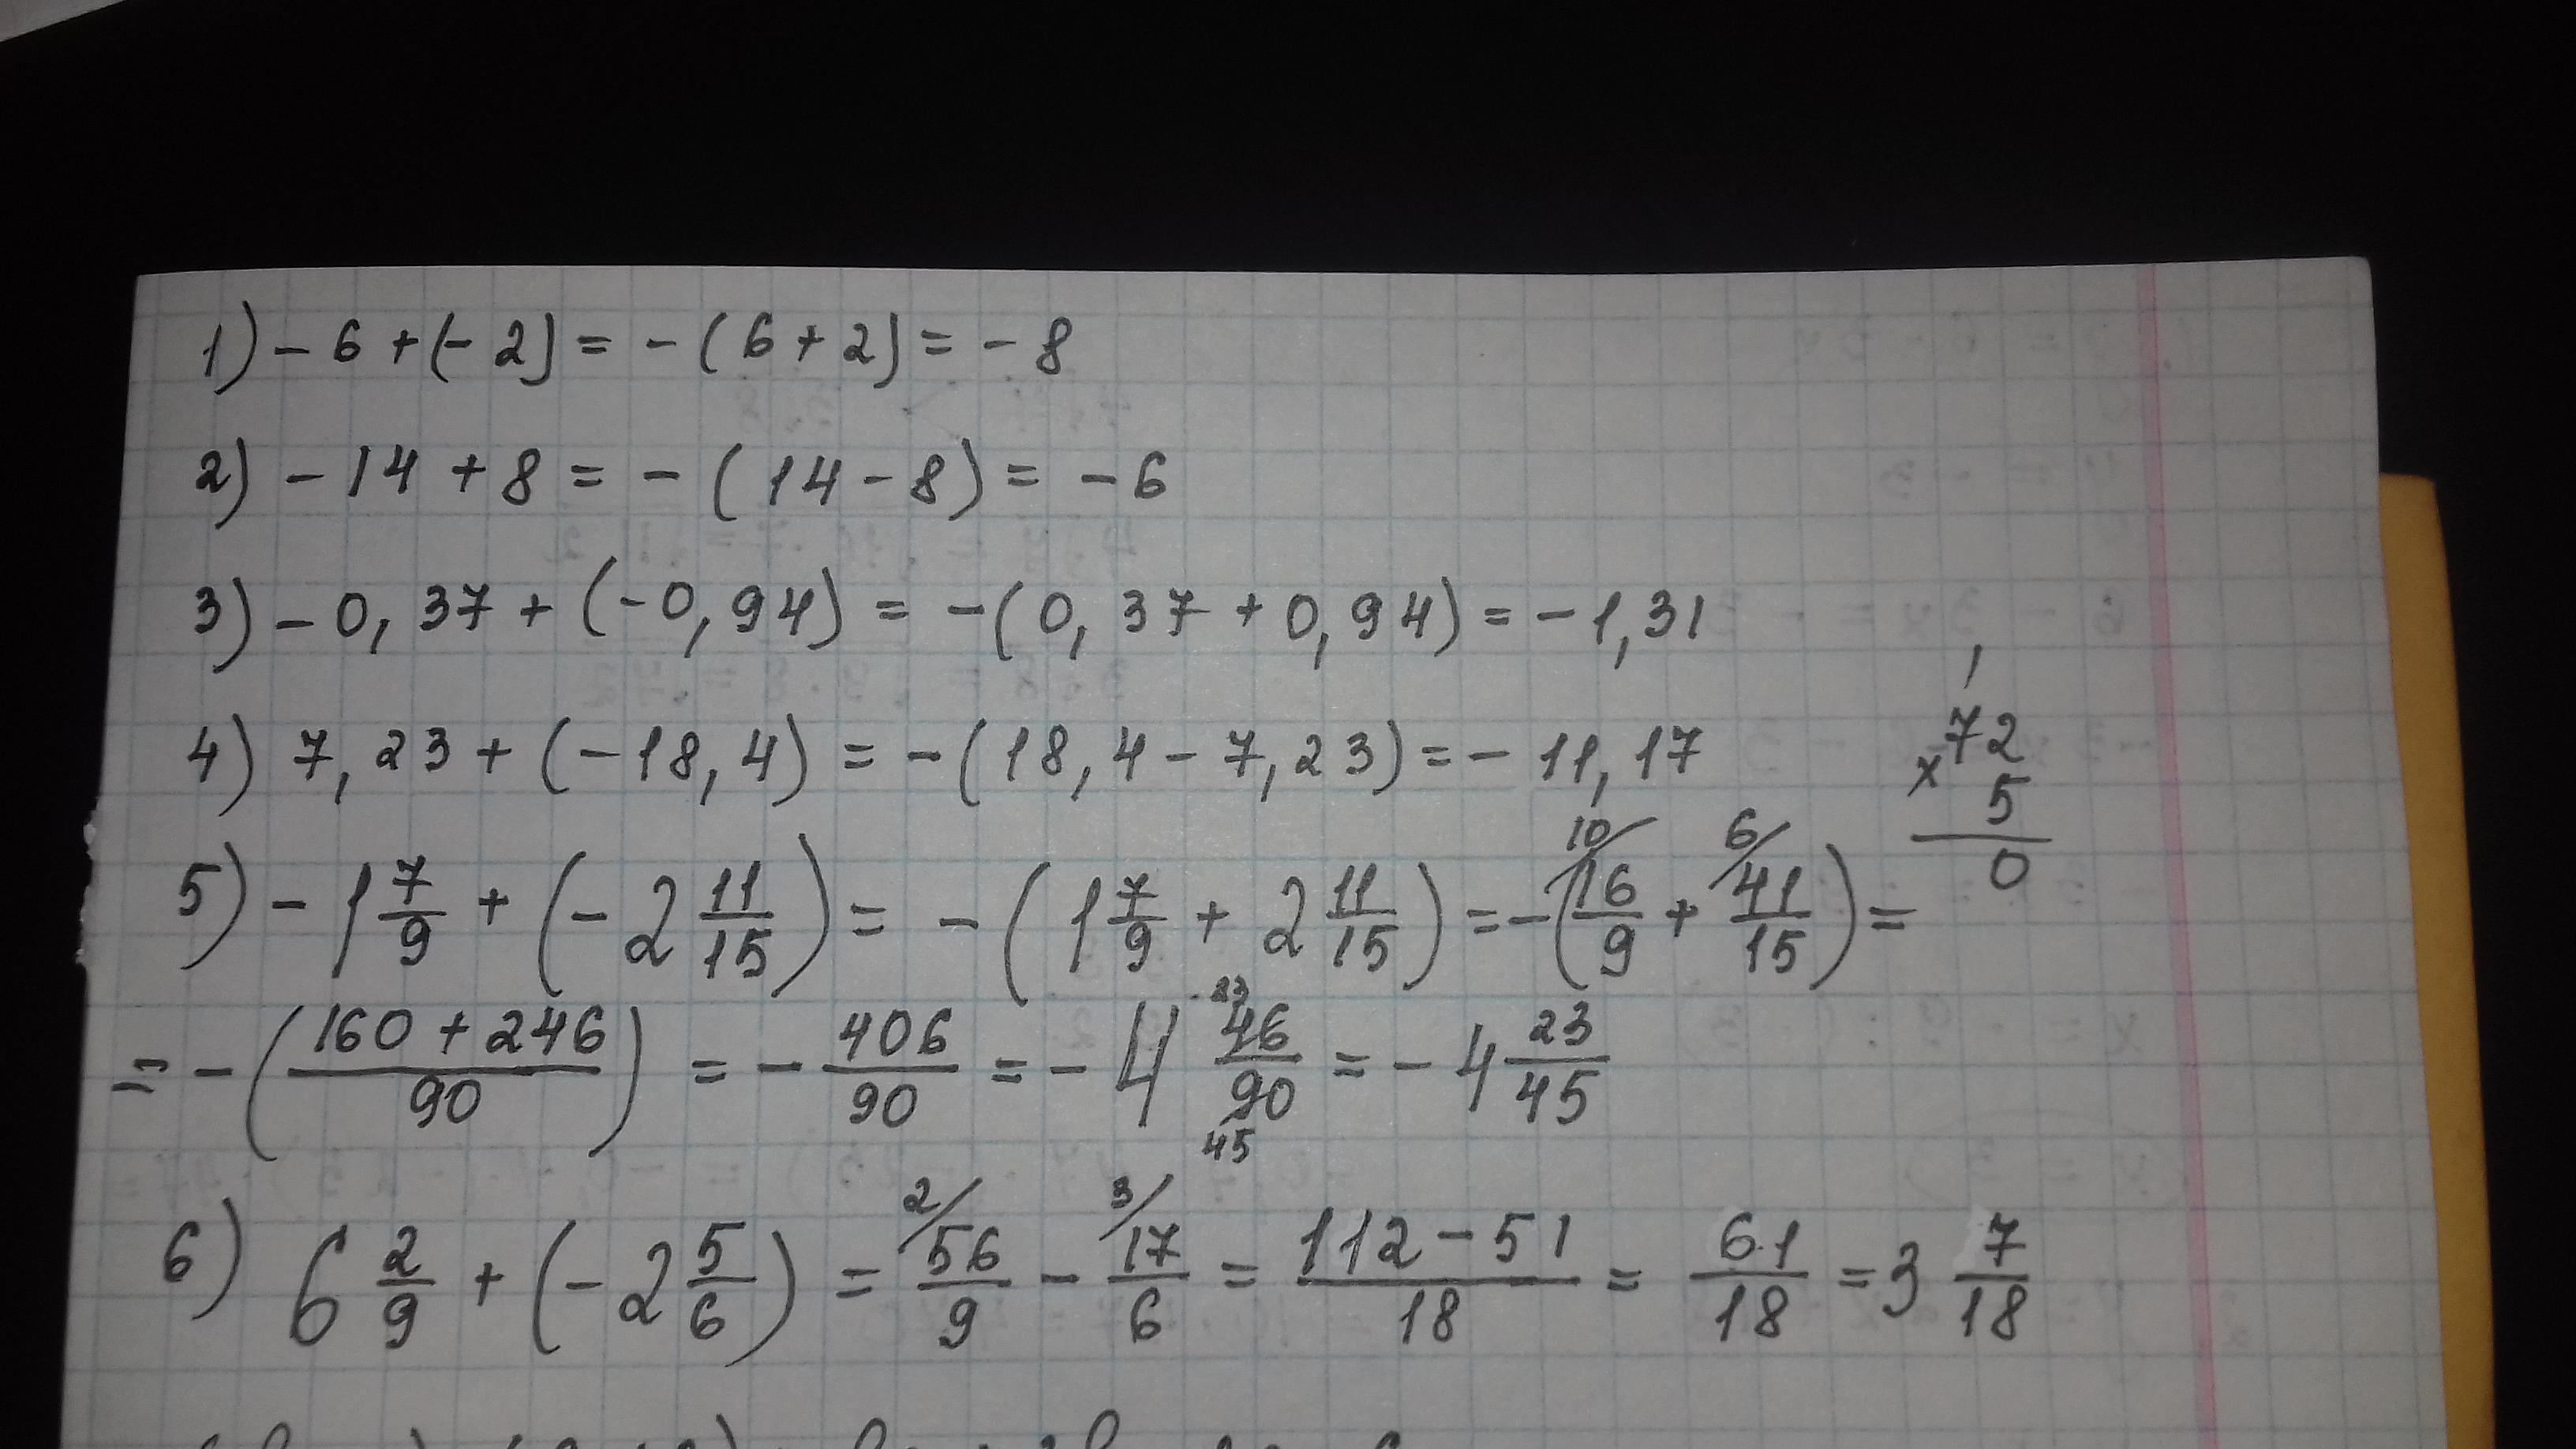 1) - 6 + (- 2) = - (6 + 2) = - 8
2) - 14 + 8 = - (14 - 8) = - 6
3) - 0,37 + (-0,94) = -(0,37 + 0,94) = - 1,31
4) 7,23 + (-18,4) = -(18,4 - 7,23) = - 11,17
72
× 5
0
5) - 1 7/9 + (- 2 11/15) = - (1 7/9 + 2 11/15) = -(10/ 16/9 + 6/ 41/15) =
= - ((160 + 246)/90) = - 406/90 = - 4 46/90 23 45 = - 4 23/45
6) 6 2/9 + (- 2 5/6) = 2/ 56/9 - 3/ 17/6 = (112 - 51)/18 = 61/18 = 3 7/18